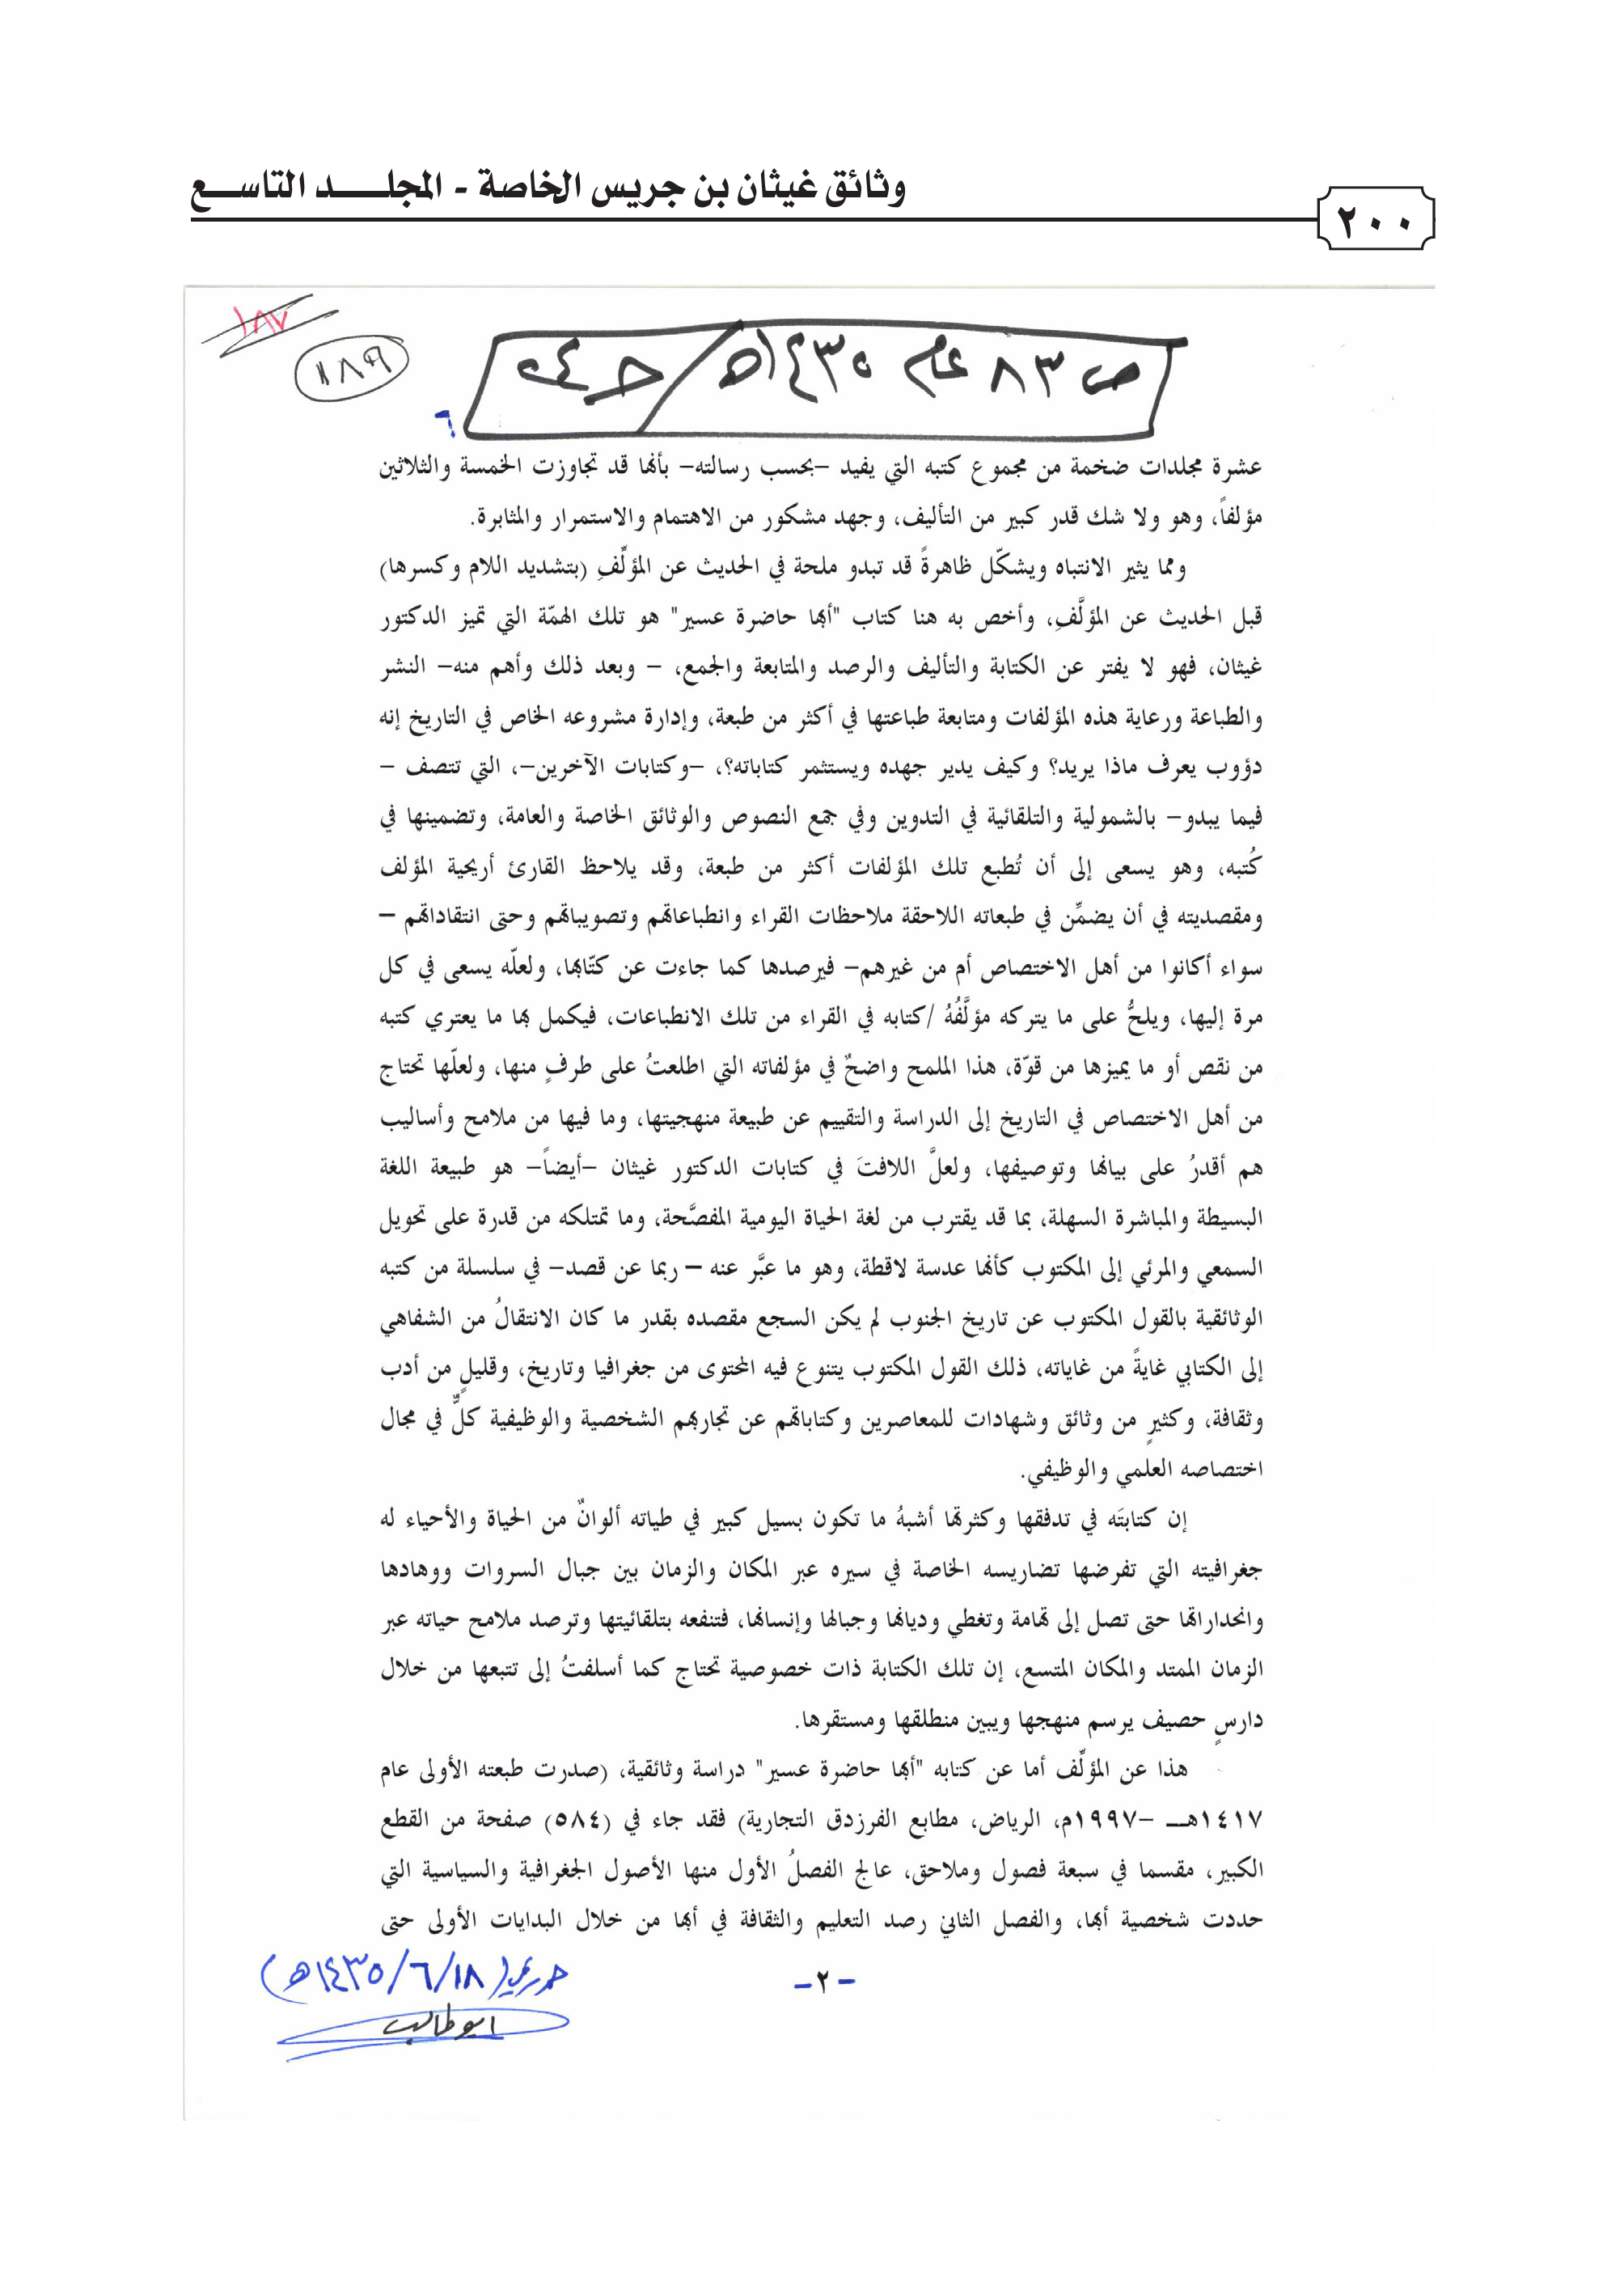 وثائق غيثان بن جريس الخاصة - المجلـــــد التاســـع
٢٠٠
١٨٧
١٨٩
ص ٨٣ عام ١٤٣٥هـ /
٦
عشرة مجلدات ضخمة من مجموع كتبه التي يفيد –بحسب رسالته– بأنها قد تجاوزت الخمسة والثلاثين
مؤلفاً، وهو ولا شك قدر كبير من التأليف، وجهد مشكور من الاهتمام والاستمرار والمثابرة.
ومما يثير الانتباه ويشكّل ظاهرةً قد تبدو ملحة في الحديث عن المؤلِّفِ (بتشديد اللام وكسرها)
قبل الحديث عن المؤلَّفِ، وأخص به هنا كتاب "أبها حاضرة عسير" هو تلك الهمّة التي تميز الدكتور
غيثان، فهو لا يفتر عن الكتابة والتأليف والرصد والمتابعة والجمع، – وبعد ذلك وأهم منه– النشر
والطباعة ورعاية هذه المؤلفات ومتابعة طباعتها في أكثر من طبعة، وإدارة مشروعه الخاص في التاريخ إنه
دؤوب يعرف ماذا يريد؟ وكيف يدير جهده ويستثمر كتاباته؟، –وكتابات الآخرين–، التي تتصف –
فيما يبدو– بالشمولية والتلقائية في التدوين وفي جمع النصوص والوثائق الخاصة والعامة، وتضمينها في
كُتبه، وهو يسعى إلى أن تُطبع تلك المؤلفات أكثر من طبعة، وقد يلاحظ القارئ أريحية المؤلف
ومقصديته في أن يضمِّن في طبعاته اللاحقة ملاحظات القراء وانطباعاتهم وتصويباتهم وحتى انتقاداتهم –
سواء أكانوا من أهل الاختصاص أم من غيرهم– فيرصدها كما جاءت عن كتّابها، ولعلّه يسعى في كل
مرة إليها، ويلحُّ على ما يتركه مؤلَّفُهُ /كتابه في القراء من تلك الانطباعات، فيكمل بها ما يعتري كتبه
من نقص أو ما يميزها من قوّة، هذا الملمح واضحٌ في مؤلفاته التي اطلعتُ على طرفٍ منها، ولعلّها تحتاج
من أهل الاختصاص في التاريخ إلى الدراسة والتقييم عن طبيعة منهجيتها، وما فيها من ملامح وأساليب
هم أقدرُ على بيانها وتوصيفها، ولعلَّ اللافتَ في كتابات الدكتور غيثان –أيضاً– هو طبيعة اللغة
البسيطة والمباشرة السهلة، بما قد يقترب من لغة الحياة اليومية المفصَّحة، وما تمتلكه من قدرة على تحويل
السمعي والمرئي إلى المكتوب كأنها عدسة لاقطة، وهو ما عبَّر عنه – ربما عن قصد– في سلسلة من كتبه
الوثائقية بالقول المكتوب عن تاريخ الجنوب لم يكن السجع مقصده بقدر ما كان الانتقالُ من الشفاهي
إلى الكتابي غايةً من غاياته، ذلك القول المكتوب يتنوع فيه المحتوى من جغرافيا وتاريخ، وقليلٍ من أدب
وثقافة، وكثيرٍ من وثائق وشهادات للمعاصرين وكتاباتهم عن تجاربهم الشخصية والوظيفية كلٌّ في مجال
اختصاصه العلمي والوظيفي.
إن كتابتَه في تدفقها وكثرتها أشبهُ ما تكون بسيل كبير في طياته ألوانٌ من الحياة والأحياء له
جغرافيته التي تفرضها تضاريسه الخاصة في سيره عبر المكان والزمان بين جبال السروات ووهادها
وانحداراتها حتى تصل إلى تهامة وتغطي وديانها وجبالها وإنسانها، فتنفعه بتلقائيتها وترصد ملامح حياته عبر
الزمان الممتد والمكان المتسع، إن تلك الكتابة ذات خصوصية تحتاج كما أسلفتُ إلى تتبعها من خلال
دارسٍ حصيف يرسم منهجها ويبين منطلقها ومستقرها.
هذا عن المؤلِّف أما عن كتابه "أبها حاضرة عسير" دراسة وثائقية، (صدرت طبعته الأولى عام
١٤١٧هــ –١٩٩٧م، الرياض، مطابع الفرزدق التجارية) فقد جاء في (٥٨٤) صفحة من القطع
الكبير، مقسما في سبعة فصول وملاحق، عالج الفصلُ الأول منها الأصول الجغرافية والسياسية التي
حددت شخصية أبها، والفصل الثاني رصد التعليم والثقافة في أبها من خلال البدايات الأولى حتى
–٢–
(١٤٣٥/٦/١٨هـ)
ابو طالب